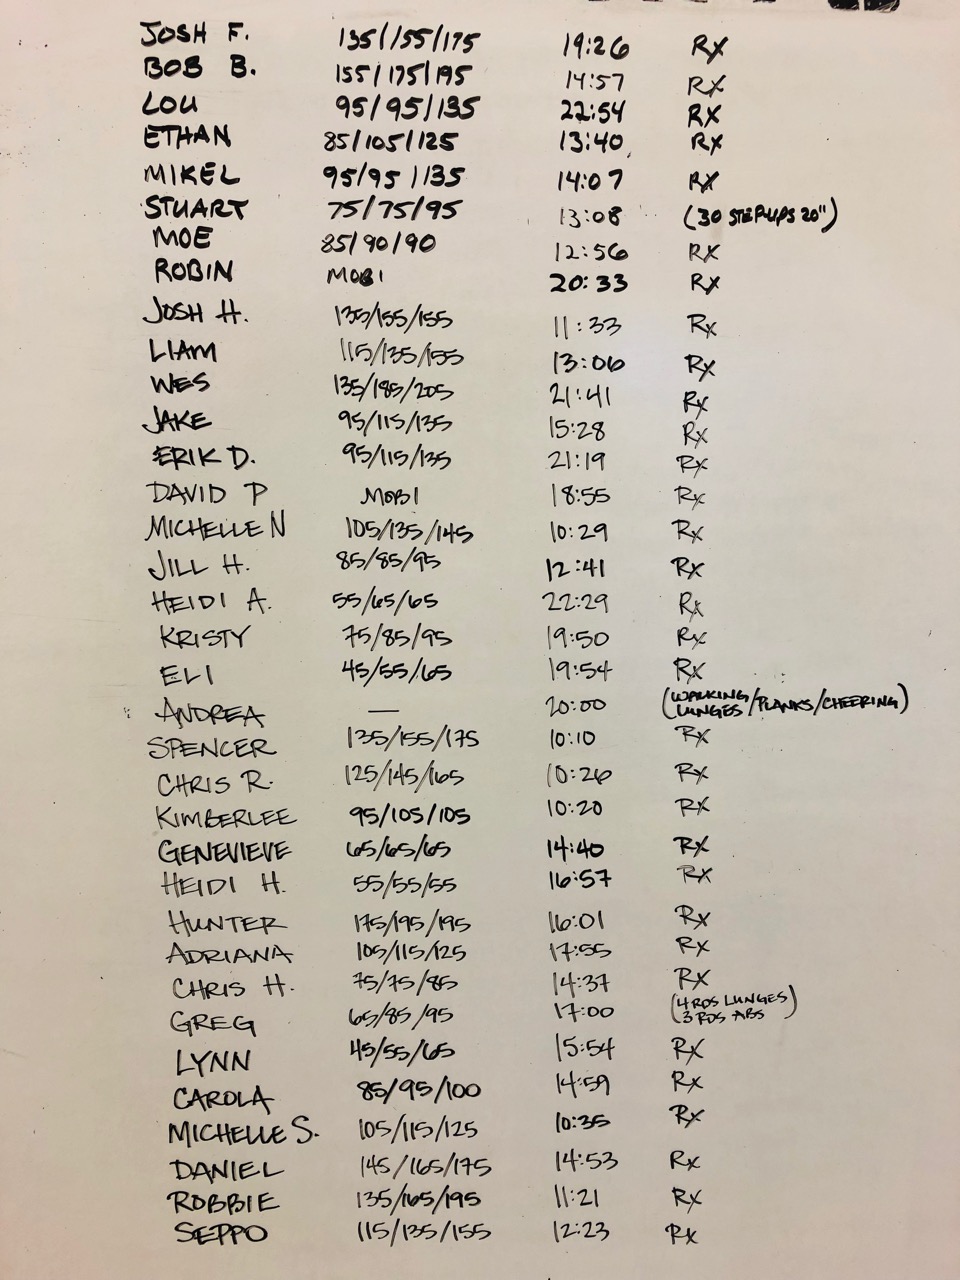 JOSH F. 135/155/175 19:26 RX
BOB B. 155/175/195 14:57 RX
LOU 95/95/135 22:54 RX
ETHAN 85/105/125 13:40 RX
MIKEL 95/95/135 14:07 RX
STUART 75/75/95 13:08 (30 STEP-UPS 20")
MOE 85/90/90 12:56 RX
ROBIN MOBI 20:33 RX
JOSH H. 135/155/155 11:33 Rx
LIAM 115/135/155 13:06 Rx
WES 135/185/205 21:41 Rx
JAKE 95/115/135 15:28 Rx
ERIK D. 95/115/135 21:19 Rx
DAVID P MOBI 18:55 Rx
MICHELLE N 105/135/145 10:29 Rx
JILL H. 85/85/95 12:41 Rx
HEIDI A. 55/65/65 22:29 Rx
KRISTY 75/85/95 19:50 Rx
ELI 45/55/65 19:54 Rx
ANDREA — 20:00 (WALKING LUNGES/PLANKS/CHEERING)
SPENCER 135/155/175 10:10 Rx
CHRIS R. 125/145/165 10:26 Rx
KIMBERLEE 95/105/105 10:20 Rx
GENEVIEVE 65/65/65 14:40 Rx
HEIDI H. 55/55/55 16:57 RX
HUNTER 175/195/195 16:01 Rx
ADRIANA 105/115/125 17:55 Rx
CHRIS H. 75/75/85 14:37 RX
GREG 65/85/95 17:00 (4 RDS LUNGES) 3 RDS ABS
LYNN 45/55/65 15:54 RX
CAROLA 85/95/100 14:59 Rx
MICHELLE S. 105/115/125 10:35 Rx
DANIEL 145/165/175 14:53 Rx
ROBBIE 135/165/195 11:21 Rx
SEPPO 115/135/155 12:23 Rx